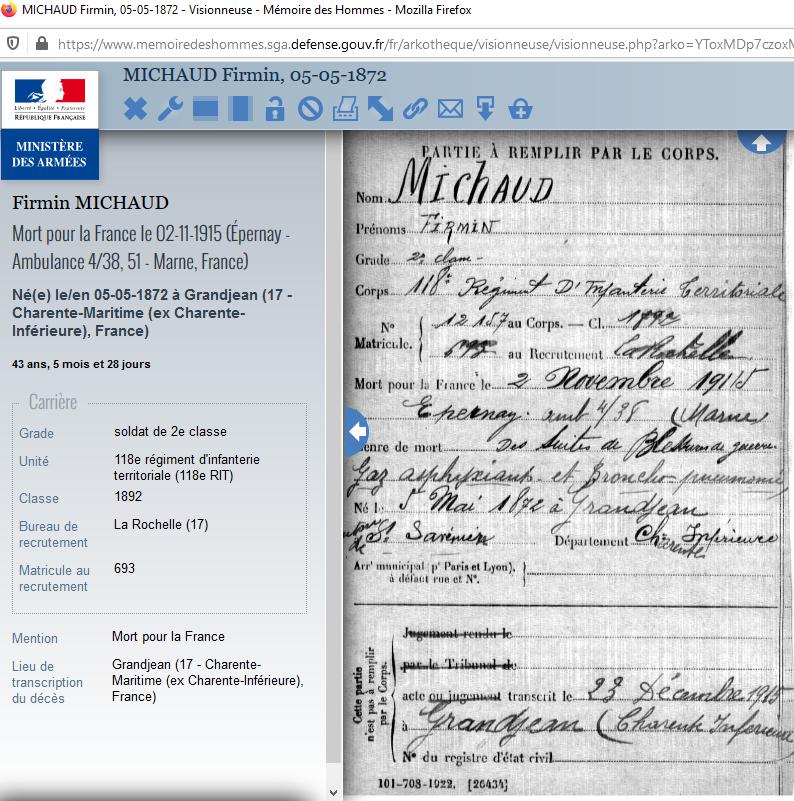 MICHAUD Firmin, 05-05-1872 - Visionneuse - Mémoire des Hommes - Mozilla Firefox
https://www.memoiredeshommes.sga.defense.gouv.fr/fr/arkotheque/visionneuse/visionneuse.php?arko=YToxMDp7czoxM
MICHAUD Firmin, 05-05-1872
Liberté • Égalité • Fraternité
RÉPUBLIQUE FRANÇAISE
MINISTÈRE
DES ARMÉES
Firmin MICHAUD
Mort pour la France le 02-11-1915 (Épernay -
Ambulance 4/38, 51 - Marne, France)
Né(e) le/en 05-05-1872 à Grandjean (17 -
Charente-Maritime (ex Charente-
Inférieure), France)
43 ans, 5 mois et 28 jours
Carrière
Grade soldat de 2e classe
Unité 118e régiment d'infanterie
territoriale (118e RIT)
Classe 1892
Bureau de La Rochelle (17)
recrutement
Matricule au 693
recrutement
Mention Mort pour la France
Lieu de Grandjean (17 - Charente-
transcription Maritime (ex Charente-Inférieure),
du décès France)
PARTIE À REMPLIR PAR LE CORPS.
Nom MICHAUD
Prénoms FIRMIN
Grade 2e
Corps 118e Régiment D'Infanterie Territoriale
No 12157 au Corps. — Cl. 1892
Matricule. 693 au Recrutement La Rochelle
Mort pour la France le 2 Novembre 1915
Epernay. amb 4/38 (Marne
enre de mort Des Suites de Blessures de guerre
Gaz asphyxiants et Broncho-pneumonie
Né le 5 Mai 1872 à Grandjean
de St Savinien Département Che Inférieure
Charente
Arrt municipal (pr Paris et Lyon),
à défaut rue et No.
Cette partie
n'est pas à remplir
par le Corps.
Jugement rendu le
par le Tribunal de
acte ou jugement transcrit le 23 Décembre 1915
à Grandjean (Charente Inférieure
No du registre d'état civil
101-708-1922. [26434]